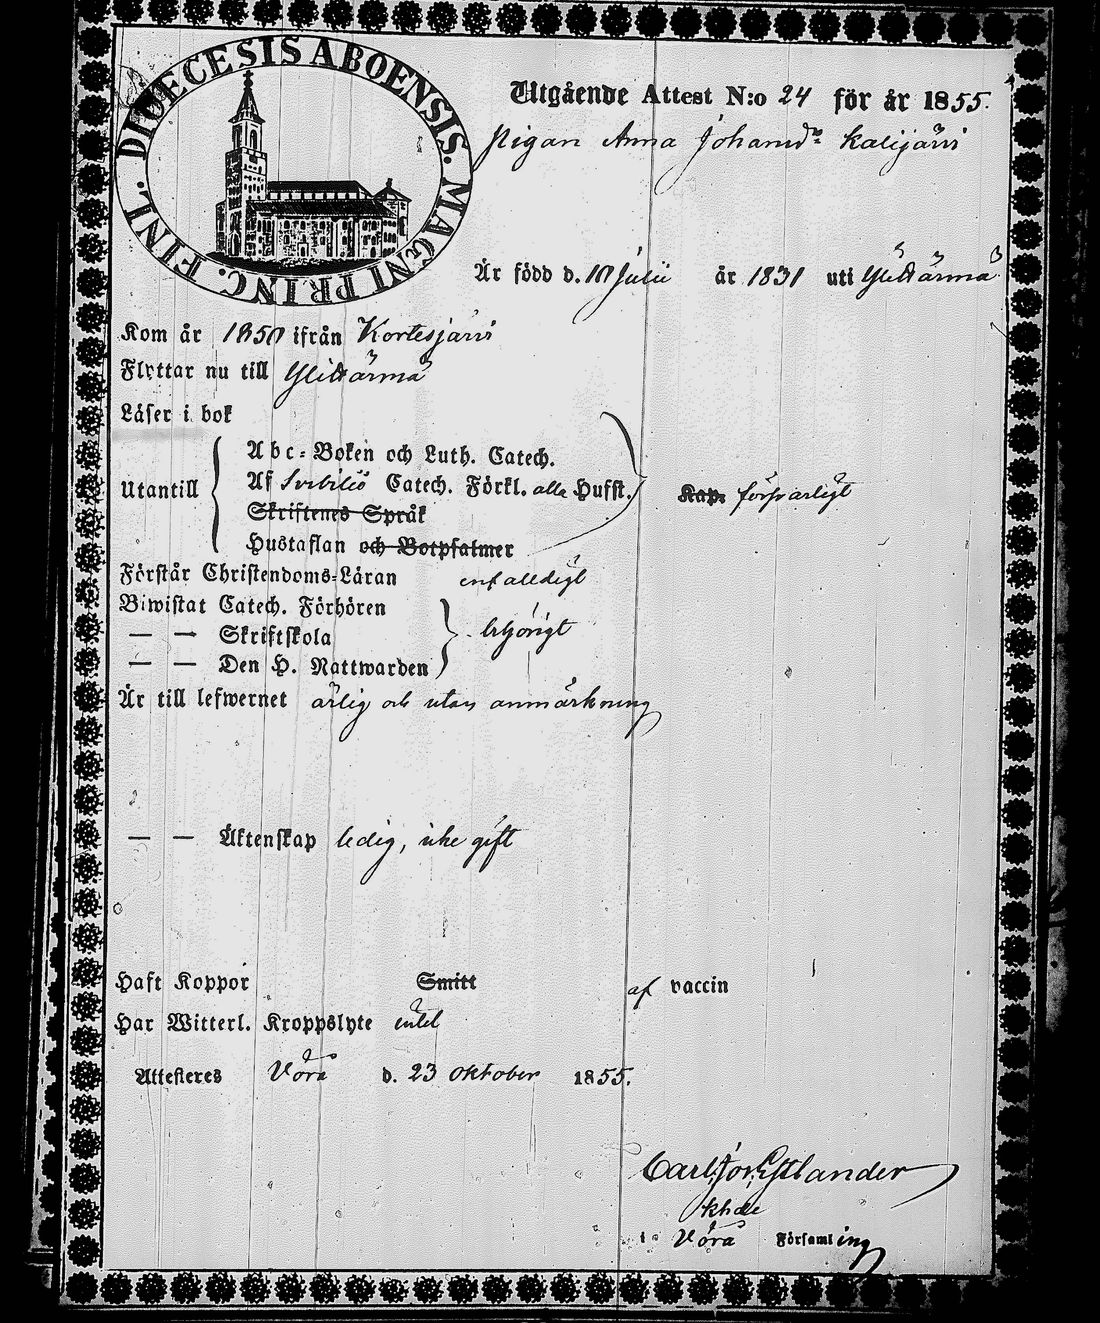 DIOECESIS ABOENSIS. MAGNI PRINC. FINL.
Utgående Attest N:o 24 för år 1855.
Pigan Anna Johansdr Kalijärvi
Är född d. 10 Julii år 1831 uti Ylihärmä
Kom år 1850 ifrån Kortesjärvi
Flyttar nu till Ylihärmä
Läser i bok
Abc-Boken och Luth. Catech.
Utantill Af Svebilii Catech. Förkl. alla Hufst. Kap. försvarligt
Skriftenes Språk
Hustaflan och Botpsalmer
Förstår Christendoms-Läran enfalldigt
Biwistat Catech. Förhören
— — Skriftskola behörigt
— — Den H. Nattwarden
Är till lefwernet ärlig och utan anmärkning
— — Äktenskap ledig, icke gift
Haft Koppor Smitt af vaccin
Har Witterl. Kroppslyte intet
Attesteres Vörå d. 23 oktober 1855.
Carl Joh Estlander
khde
i Vörå Församling